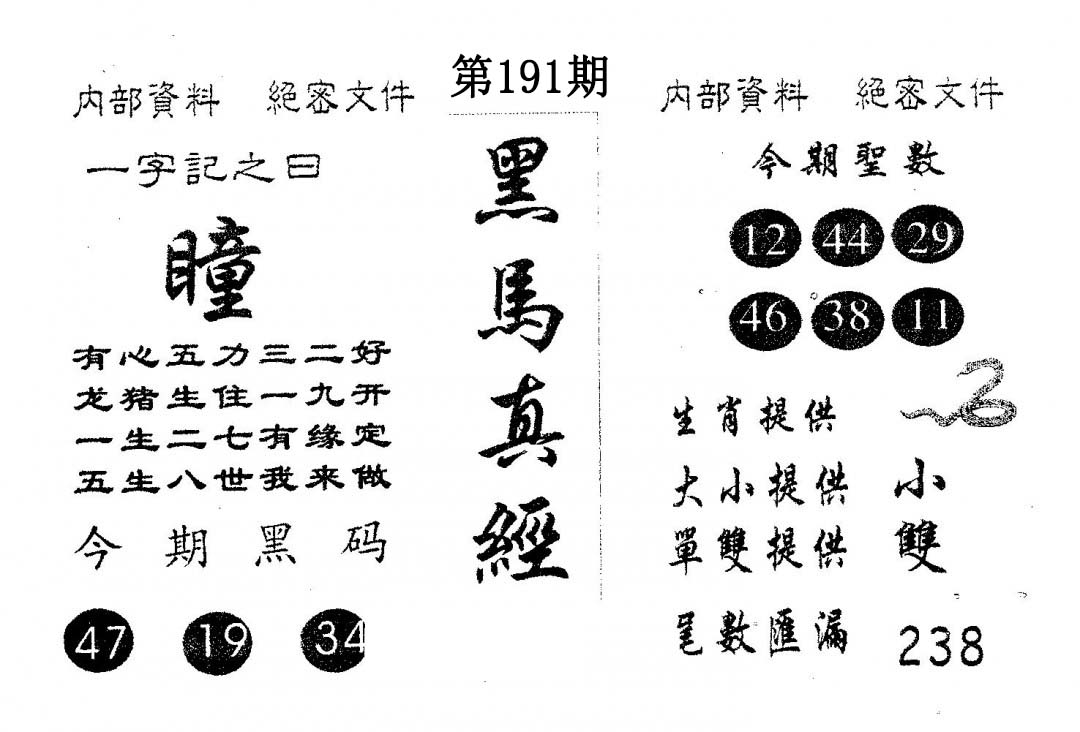 第191期
内部資料 絕密文件
一字記之曰
瞳
有心五力三二好
龙猪生住一九开
一生二七有缘定
五生八世我来做
今期黑码
47 19 34
黑馬真經
内部資料 絕密文件
今期聖數
12 44 29
46 38 11
生肖提供
大小提供 小
單雙提供 雙
尾數匯漏 238